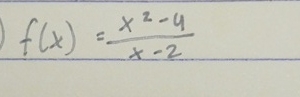 ) f(x) = \frac{x^2 - 4}{x - 2}